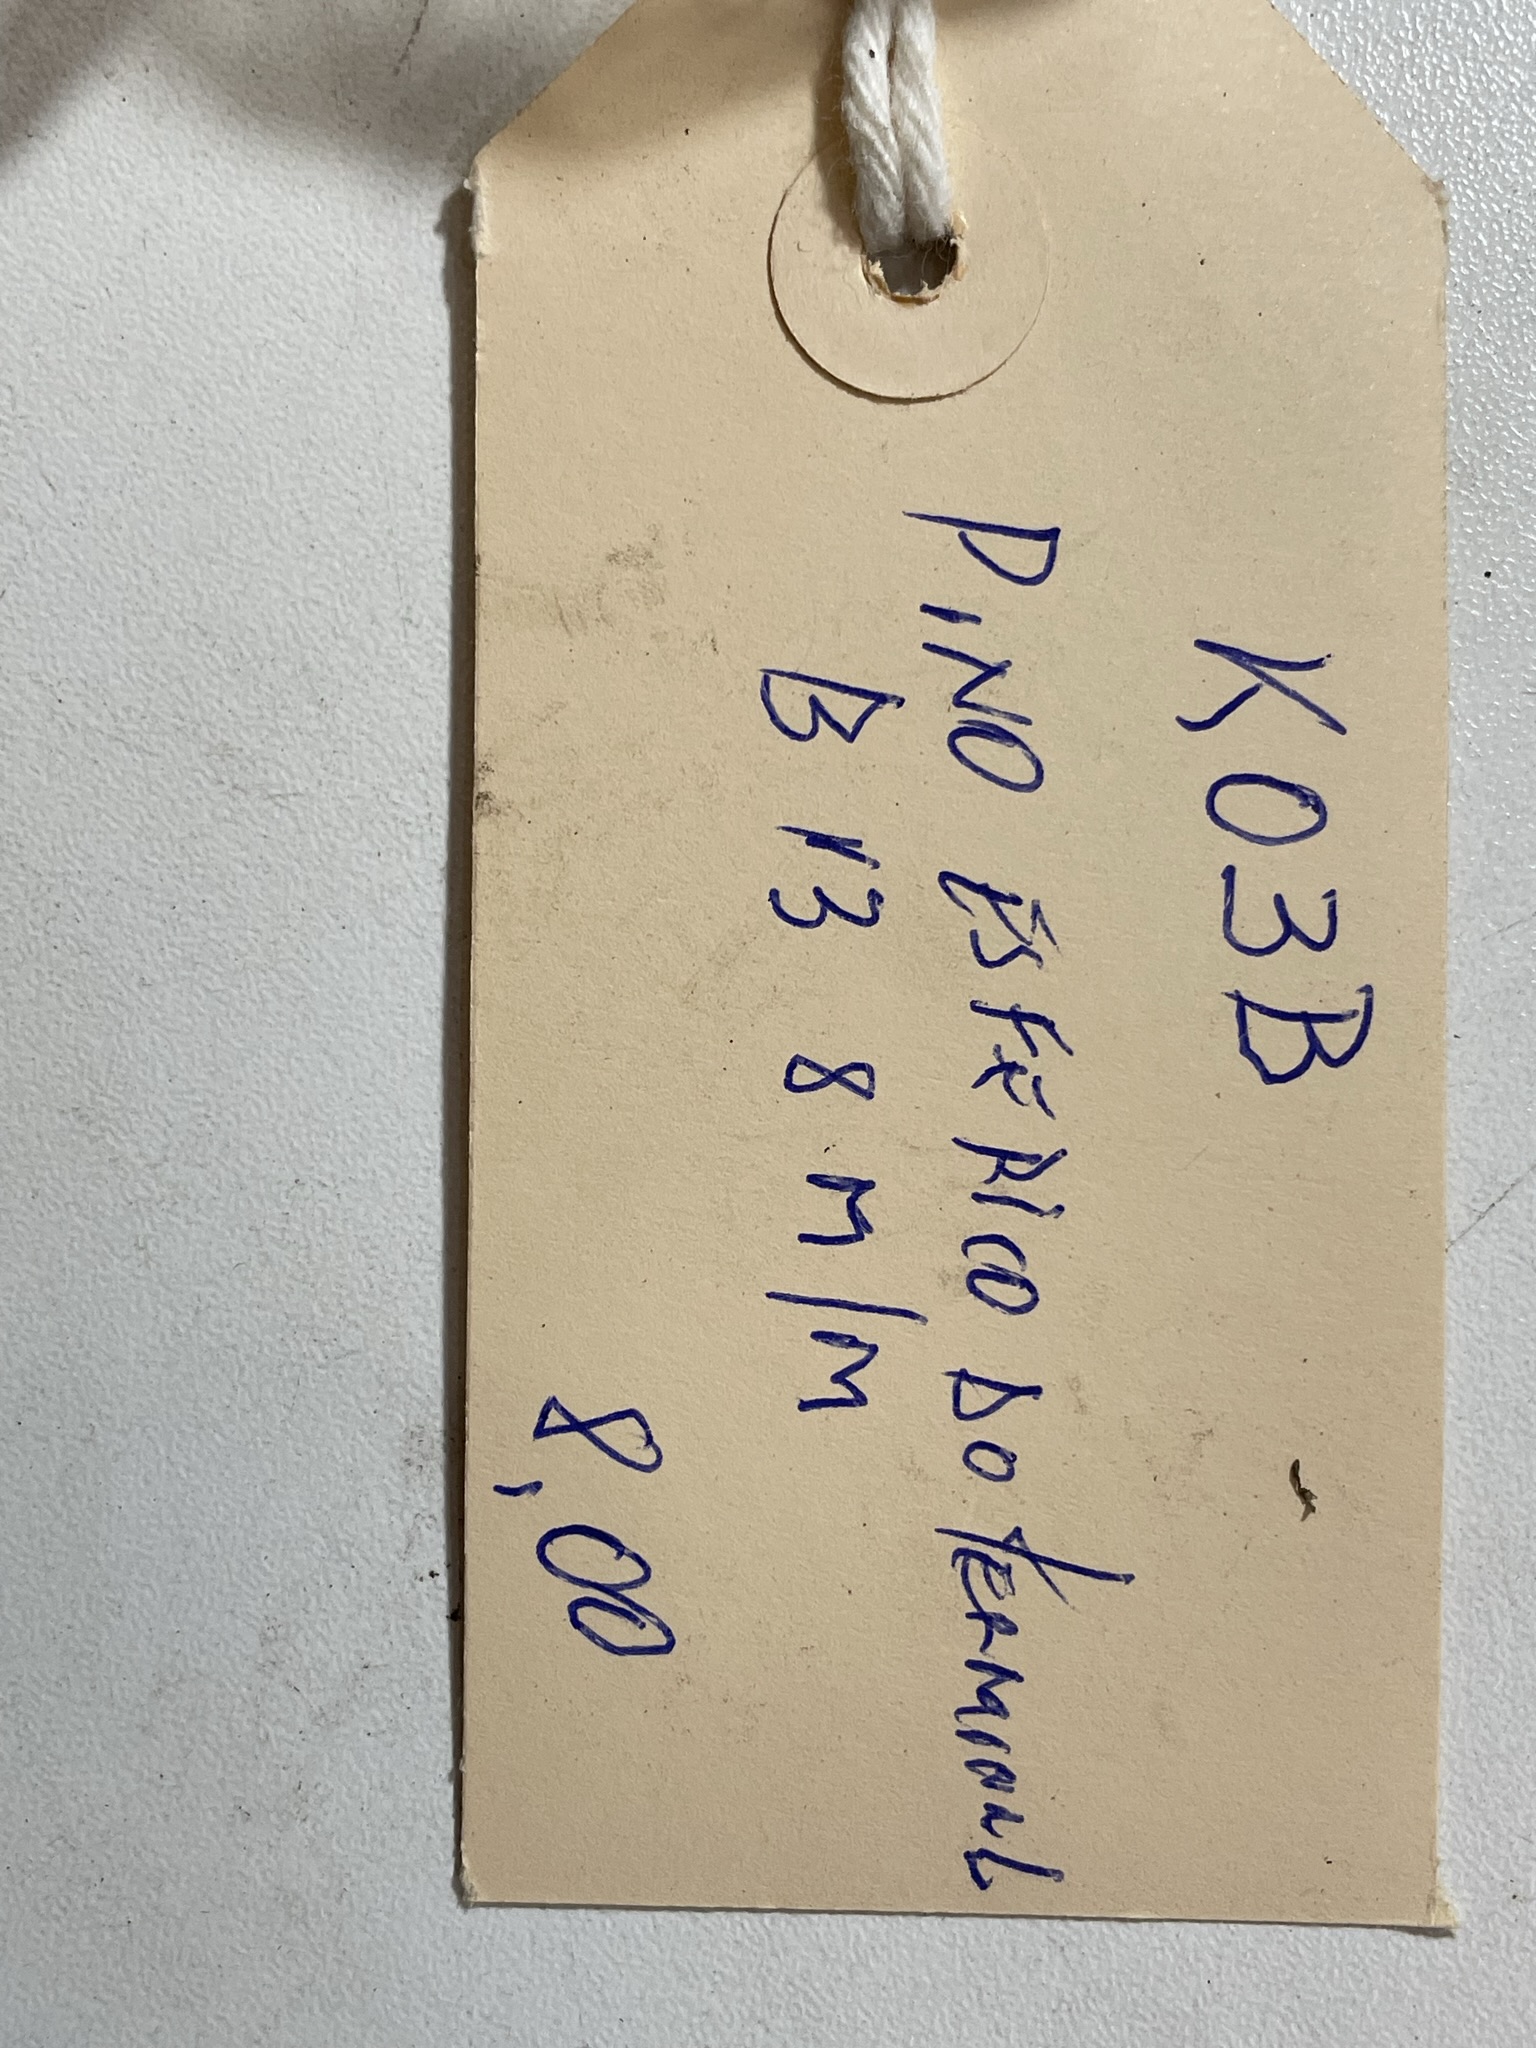 K03B
PINO ESFERICO DO TERMINAL
B 13 8 M/M
8,00